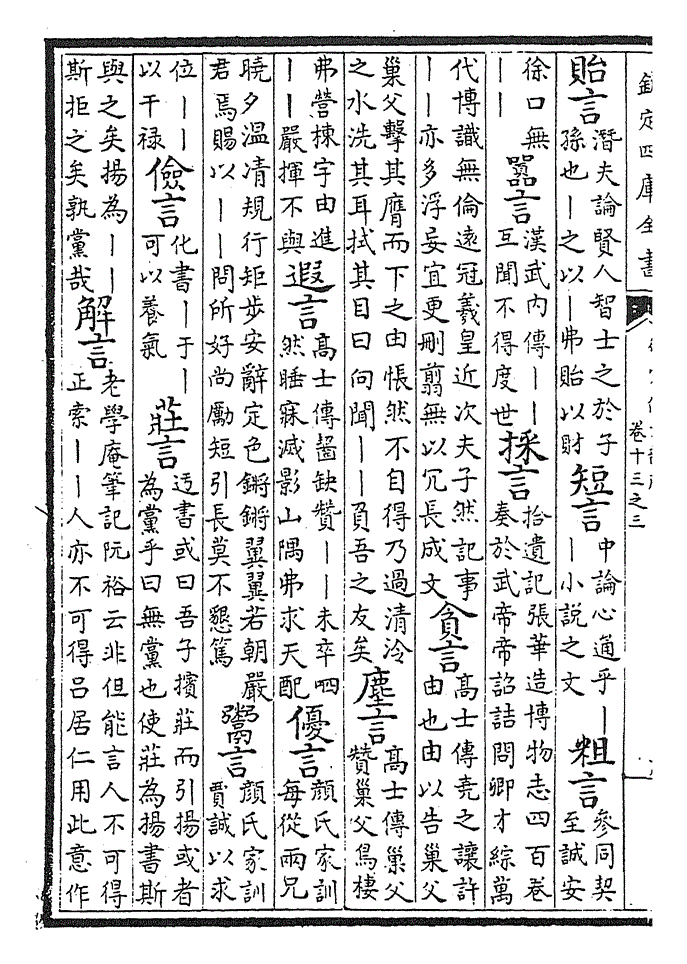 欽定四庫全書
卷十三之三
貽言潛夫論賢人智士之於子孫也｜之以｜弗貽以財短言中論心通乎｜｜小說之文粗言參同契至誠安
徐口無｜｜囂言漢武内傳｜｜互聞不得度世採言拾遺記張華造博物志四百卷奏於武帝帝詔詰問卿才綜萬
代博識無倫遠冠羲皇近次夫子然記事｜｜亦多浮妄宜更刪翦無以冗長成文貪言高士傳堯之讓許由也由以告巢父
巢父擊其膺而下之由悵然不自得乃過清泠之水洗其耳拭其目曰向聞｜｜負吾之友矣塵言高士傳巢父贊巢父鳥棲
弗營棟宇由進｜｜嚴揮不與遐言高士傳齧缺贊｜｜未卒呬然睡寐滅影山隅弗求天配優言顏氏家訓每從兩兄
曉夕温凊規行矩步安辭定色鏘鏘翼翼若朝嚴君焉賜以｜｜問所好尚勵短引長莫不懇篤鬻言顏氏家訓賈誠以求
位｜｜以干禄儉言化書｜于｜可以養氣莊言迃書或曰吾子擯莊而引揚或者為黨乎曰無黨也使莊為揚書斯
與之矣揚為｜｜斯拒之矣孰黨哉解言老學庵筆記阮裕云非但能言人不可得正索｜｜人亦不可得吕居仁用此意作